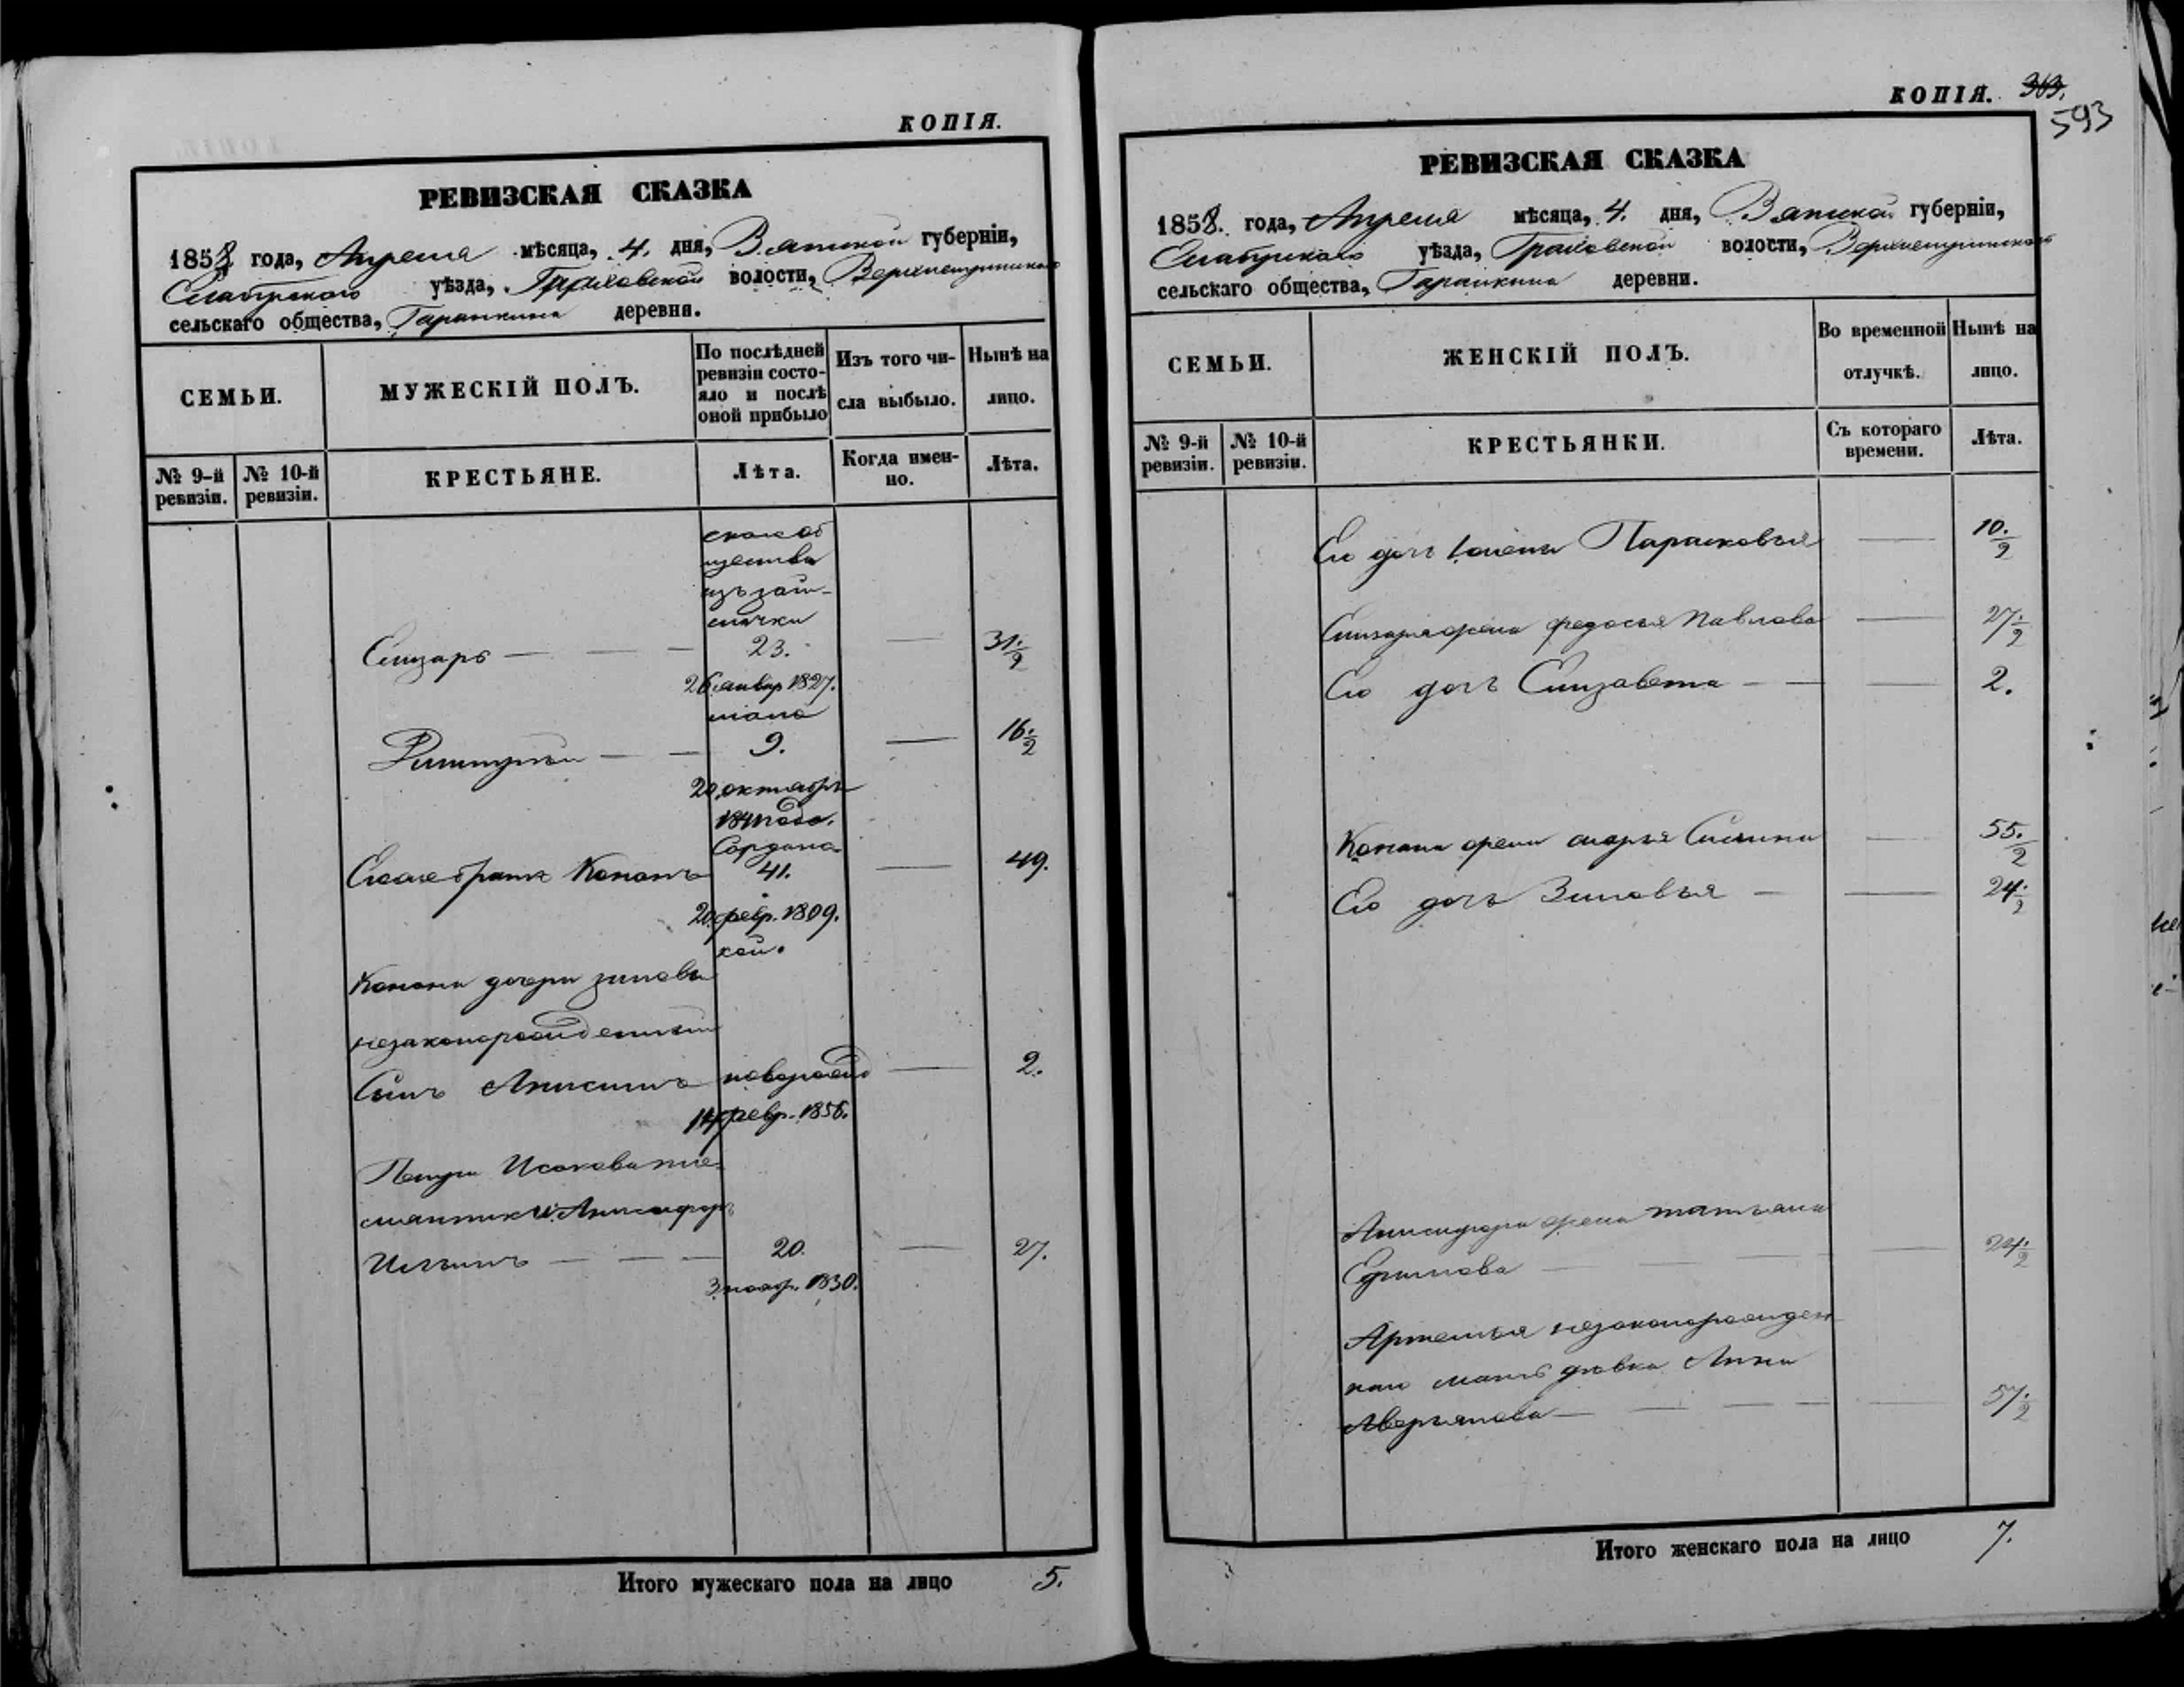 КОПІЯ.
РЕВИЗСКАЯ СКАЗКА
1858 года, Апреля мѣсяца, 4. дня, Вятской губерніи,
Елабугскаго уѣзда, Граховской волости,
сельскаго общества, деревни.
СЕМЬИ.
МУЖЕСКІЙ ПОЛЪ.
По послѣдней
ревизіи состо-
яло и послѣ
оной прибыло
Изъ того чи-
сла выбыло.
Нынѣ на
лицо.
№ 9-й
ревизіи.
№ 10-й
ревизіи.
КРЕСТЬЯНЕ.
Лѣта.
Когда имен-
но.
Лѣта.
скаго об
щества
Елизаръ — — — 23. — 31 1/2
26 январ 1827.
9. — 16 1/2
20 октября
Кононъ 41. — 49.
20 февр. 1809.
Конона дочери Зиновьи
незаконорожденный
Сынъ Анисимъ новорожд — 2.
14 февр. 1856.
Петра Исакова пле-
мянникъ Анисифоръ
Ильинъ — — — 20. — 27.
3 ноябр. 1830.
Итого мужескаго пола на лицо 5.
КОПІЯ. 363.
593
РЕВИЗСКАЯ СКАЗКА
1858. года, Апреля мѣсяца, 4. дня, Вятской губерніи,
Елабугскаго уѣзда, Граховской волости,
сельскаго общества, деревни.
СЕМЬИ.
ЖЕНСКІЙ ПОЛЪ.
Во временной
отлучкѣ.
Нынѣ на
лицо.
№ 9-й
ревизіи.
№ 10-й
ревизіи.
КРЕСТЬЯНКИ.
Съ котораго
времени.
Лѣта.
Его дочь Парасковья — 10 1/2
Елизара жена Федосья Павлова — 27 1/2
Его дочь Елизавета — — — 2.
Конона жена Марья Силина — 55 1/2
Его дочь Зиновья — — 24 1/2
Анисифора жена Татьяна
Ефимова — — — 24 1/2
Артемья незаконорожден
наго мать дѣвка Анна
Аверьянова — — — — — 57 1/2
Итого женскаго пола на лицо 7.